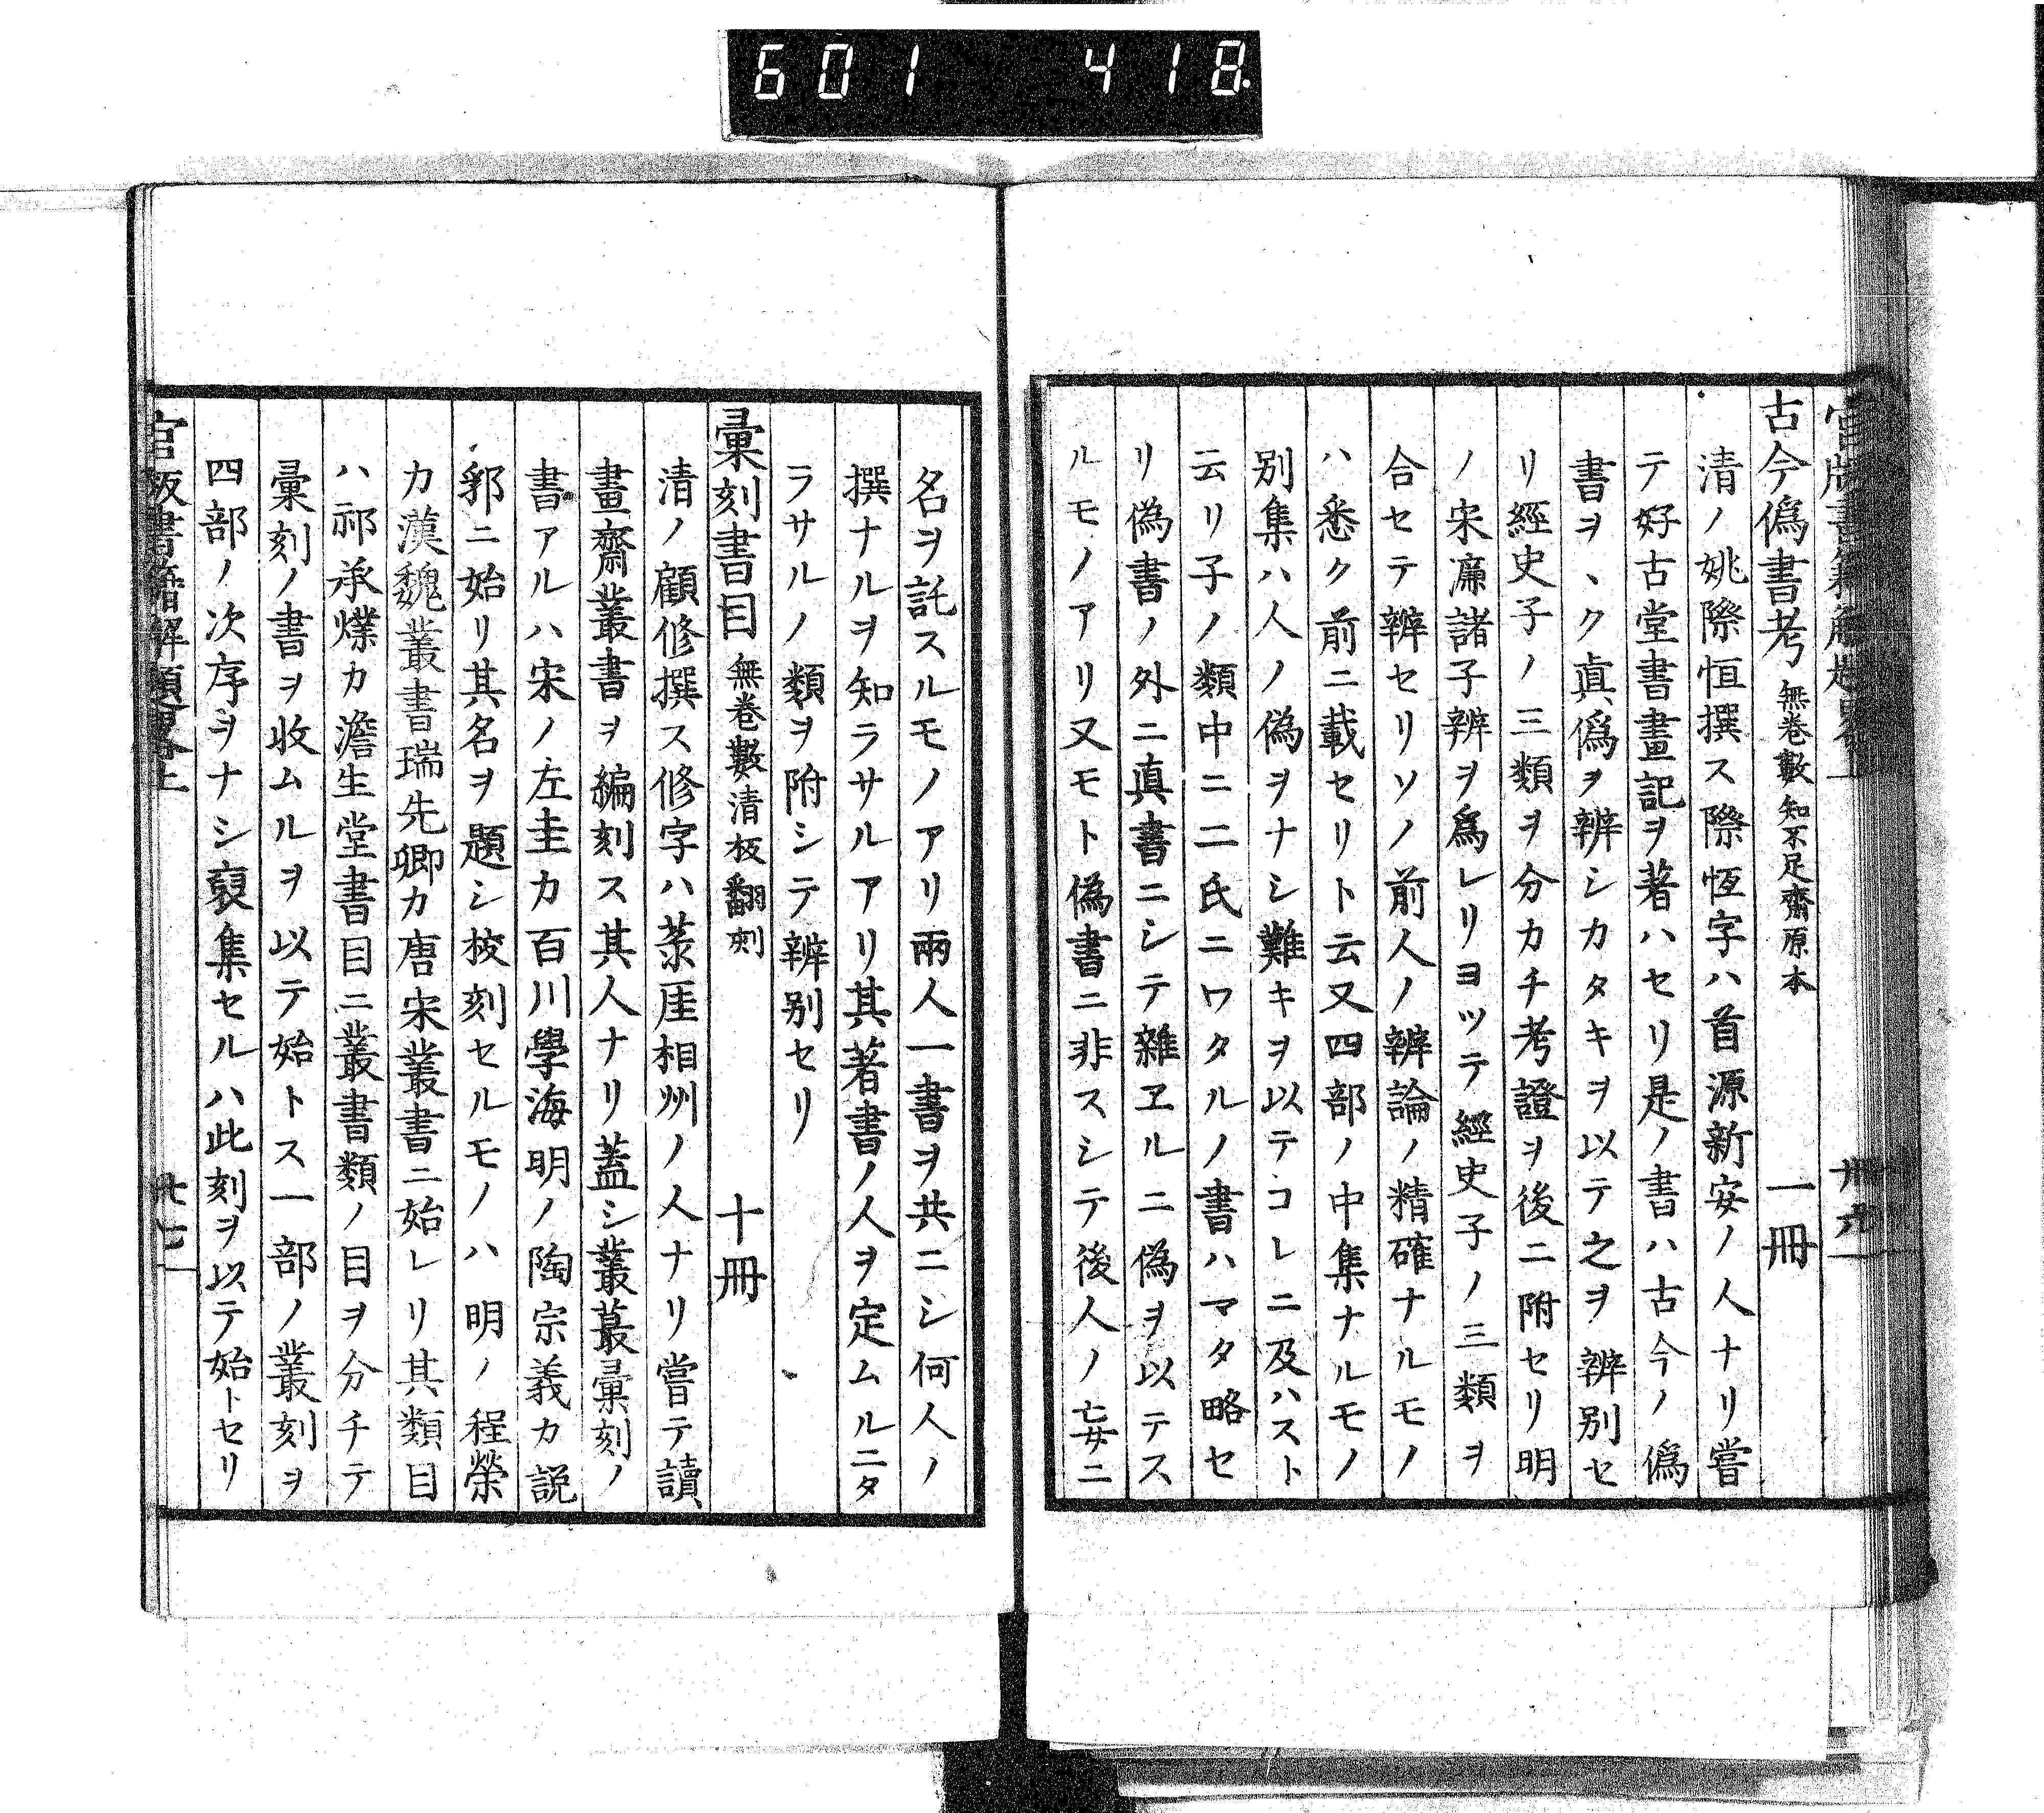 601 418
古今偽書考 無巻數知不足齋原本 一冊
清ノ姚際恒撰ス際恆字ハ首源新安ノ人ナリ嘗
テ好古堂書畫記ヲ著ハセリ是ノ書ハ古今ノ偽
書ヲヽク真偽ヲ辨シカタキヲ以テ之ヲ辨别セ
リ經史子ノ三類ヲ分カチ考證ヲ後ニ附セリ明
ノ宋濂諸子辨ヲ爲レリヨツテ經史子ノ三類ヲ
合セテ辨セリソノ前人ノ辨論ノ精確ナルモノ
ハ悉ク前ニ載セリト云又四部ノ中集ナルモノ
别集ハ人ノ偽ヲナシ難キヲ以テコレニ及ハスト
云リ子ノ類中ニ二氏ニワタルノ書ハマタ略セ
リ偽書ノ外ニ真書ニシテ雜ヱルニ偽ヲ以テス
ルモノアリ又モト偽書ニ非スシテ後人ノ妄ニ
名ヲ託スルモノアリ兩人一書ヲ共ニシ何人ノ
撰ナルヲ知ラサルアリ其著書ノ人ヲ定ムルニタ
ラサルノ類ヲ附シテ辨别セリ
彙刻書目 無巻數清板翻刻 十冊
清ノ顧修撰ス修字ハ菉厓相州ノ人ナリ嘗テ讀
畫齋叢書ヲ編刻ス其人ナリ蓋シ叢蕞彙刻ノ
書アルハ宋ノ左圭カ百川學海明ノ陶宗義カ説
郛ニ始リ其名ヲ題シ挍刻セルモノハ明ノ程榮
カ漢魏叢書瑞先卿カ唐宋叢書ニ始レリ其類目
ハ祁承㸁カ澹生堂書目ニ叢書類ノ目ヲ分チテ
彙刻ノ書ヲ收ムルヲ以テ始トス一部ノ叢刻ヲ
四部ノ次序ヲナシ裒集セルハ此刻ヲ以テ始トセリ
官板書籍解題畧上 卅七